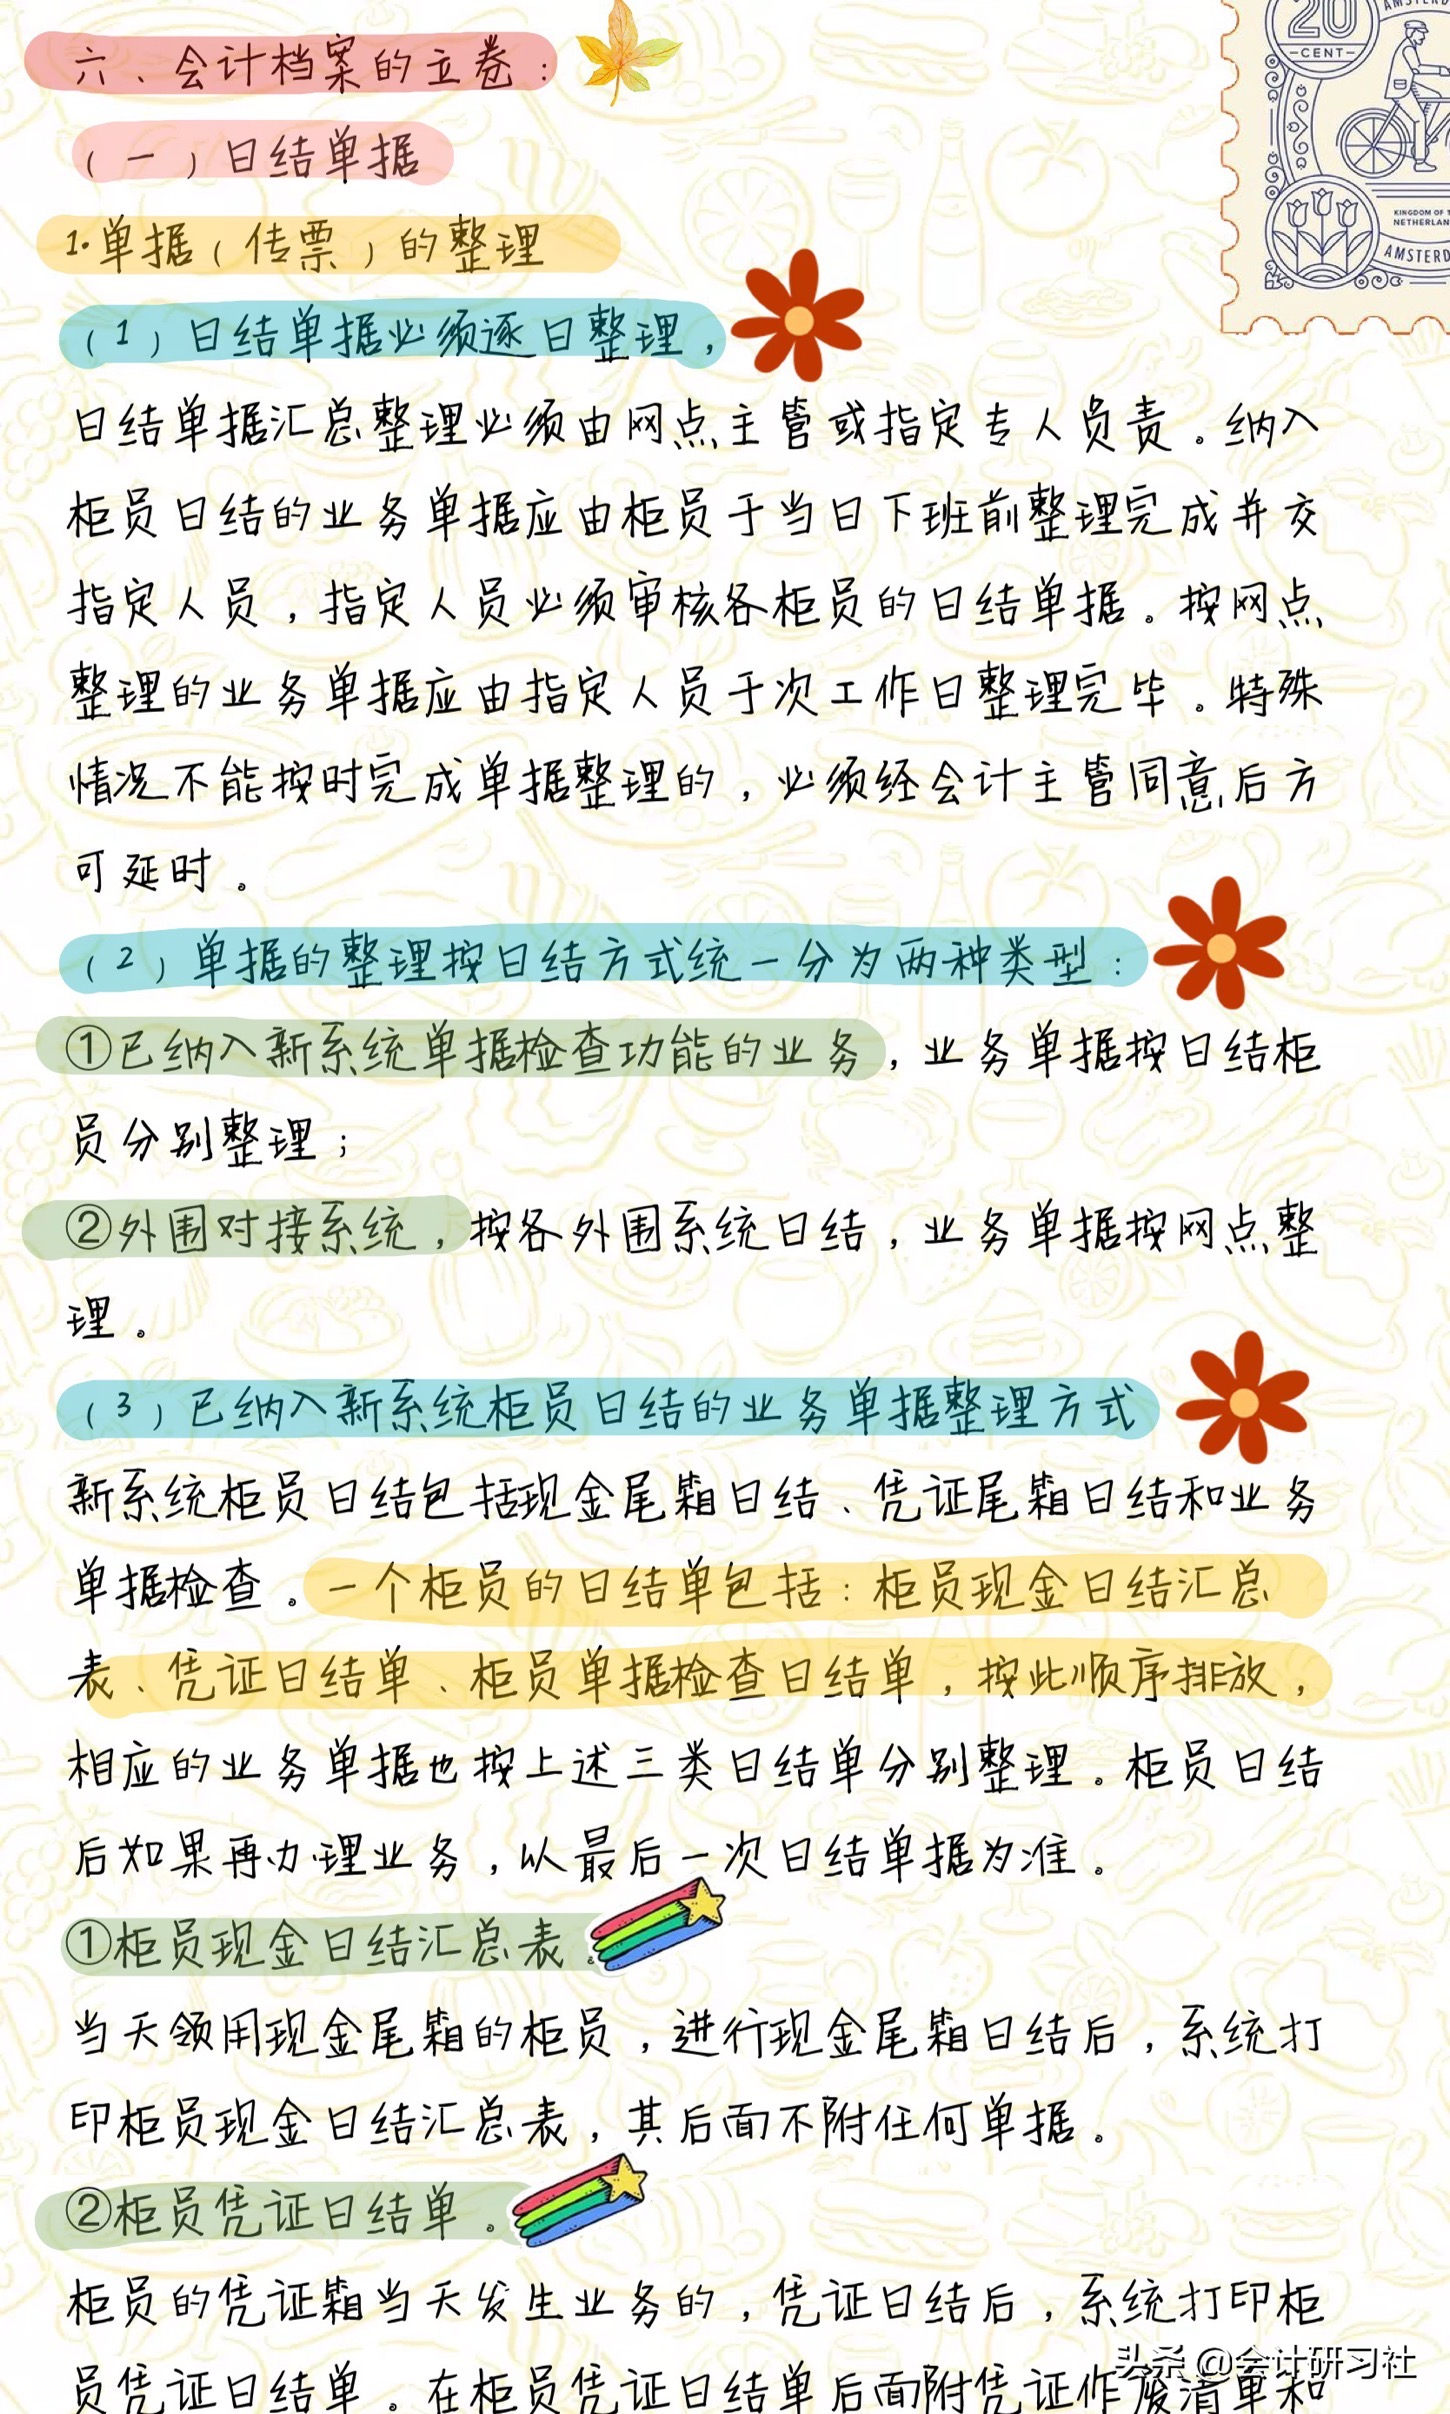 六、会计档案的立卷：
（一）日结单据
1.单据（传票）的整理
（1）日结单据必须逐日整理，
日结单据汇总整理必须由网点主管或指定专人负责。纳入
柜员日结的业务单据应由柜员于当日下班前整理完成并交
指定人员，指定人员必须审核各柜员的日结单据。按网点
整理的业务单据应由指定人员于次工作日整理完毕。特殊
情况不能按时完成单据整理的，必须经会计主管同意后方
可延时。
（2）单据的整理按日结方式统一分为两种类型：
①已纳入新系统单据检查功能的业务，业务单据按日结柜
员分别整理；
②外围对接系统，按各外围系统日结，业务单据按网点整
理。
（3）已纳入新系统柜员日结的业务单据整理方式
新系统柜员日结包括现金尾箱日结、凭证尾箱日结和业务
单据检查。一个柜员的日结单包括：柜员现金日结汇总
表、凭证日结单、柜员单据检查日结单，按此顺序排放，
相应的业务单据也按上述三类日结单分别整理。柜员日结
后如果再办理业务，以最后一次日结单据为准。
①柜员现金日结汇总表。
当天领用现金尾箱的柜员，进行现金尾箱日结后，系统打
印柜员现金日结汇总表，其后面不附任何单据。
②柜员凭证日结单。
柜员的凭证箱当天发生业务的，凭证日结后，系统打印柜
员凭证日结单。在柜员凭证日结单后面附凭证作废清单和
头条 @会计研习社
20
CENT
AMSTERD
KINGDOM OF T
NETHERLAN
AMSTERD